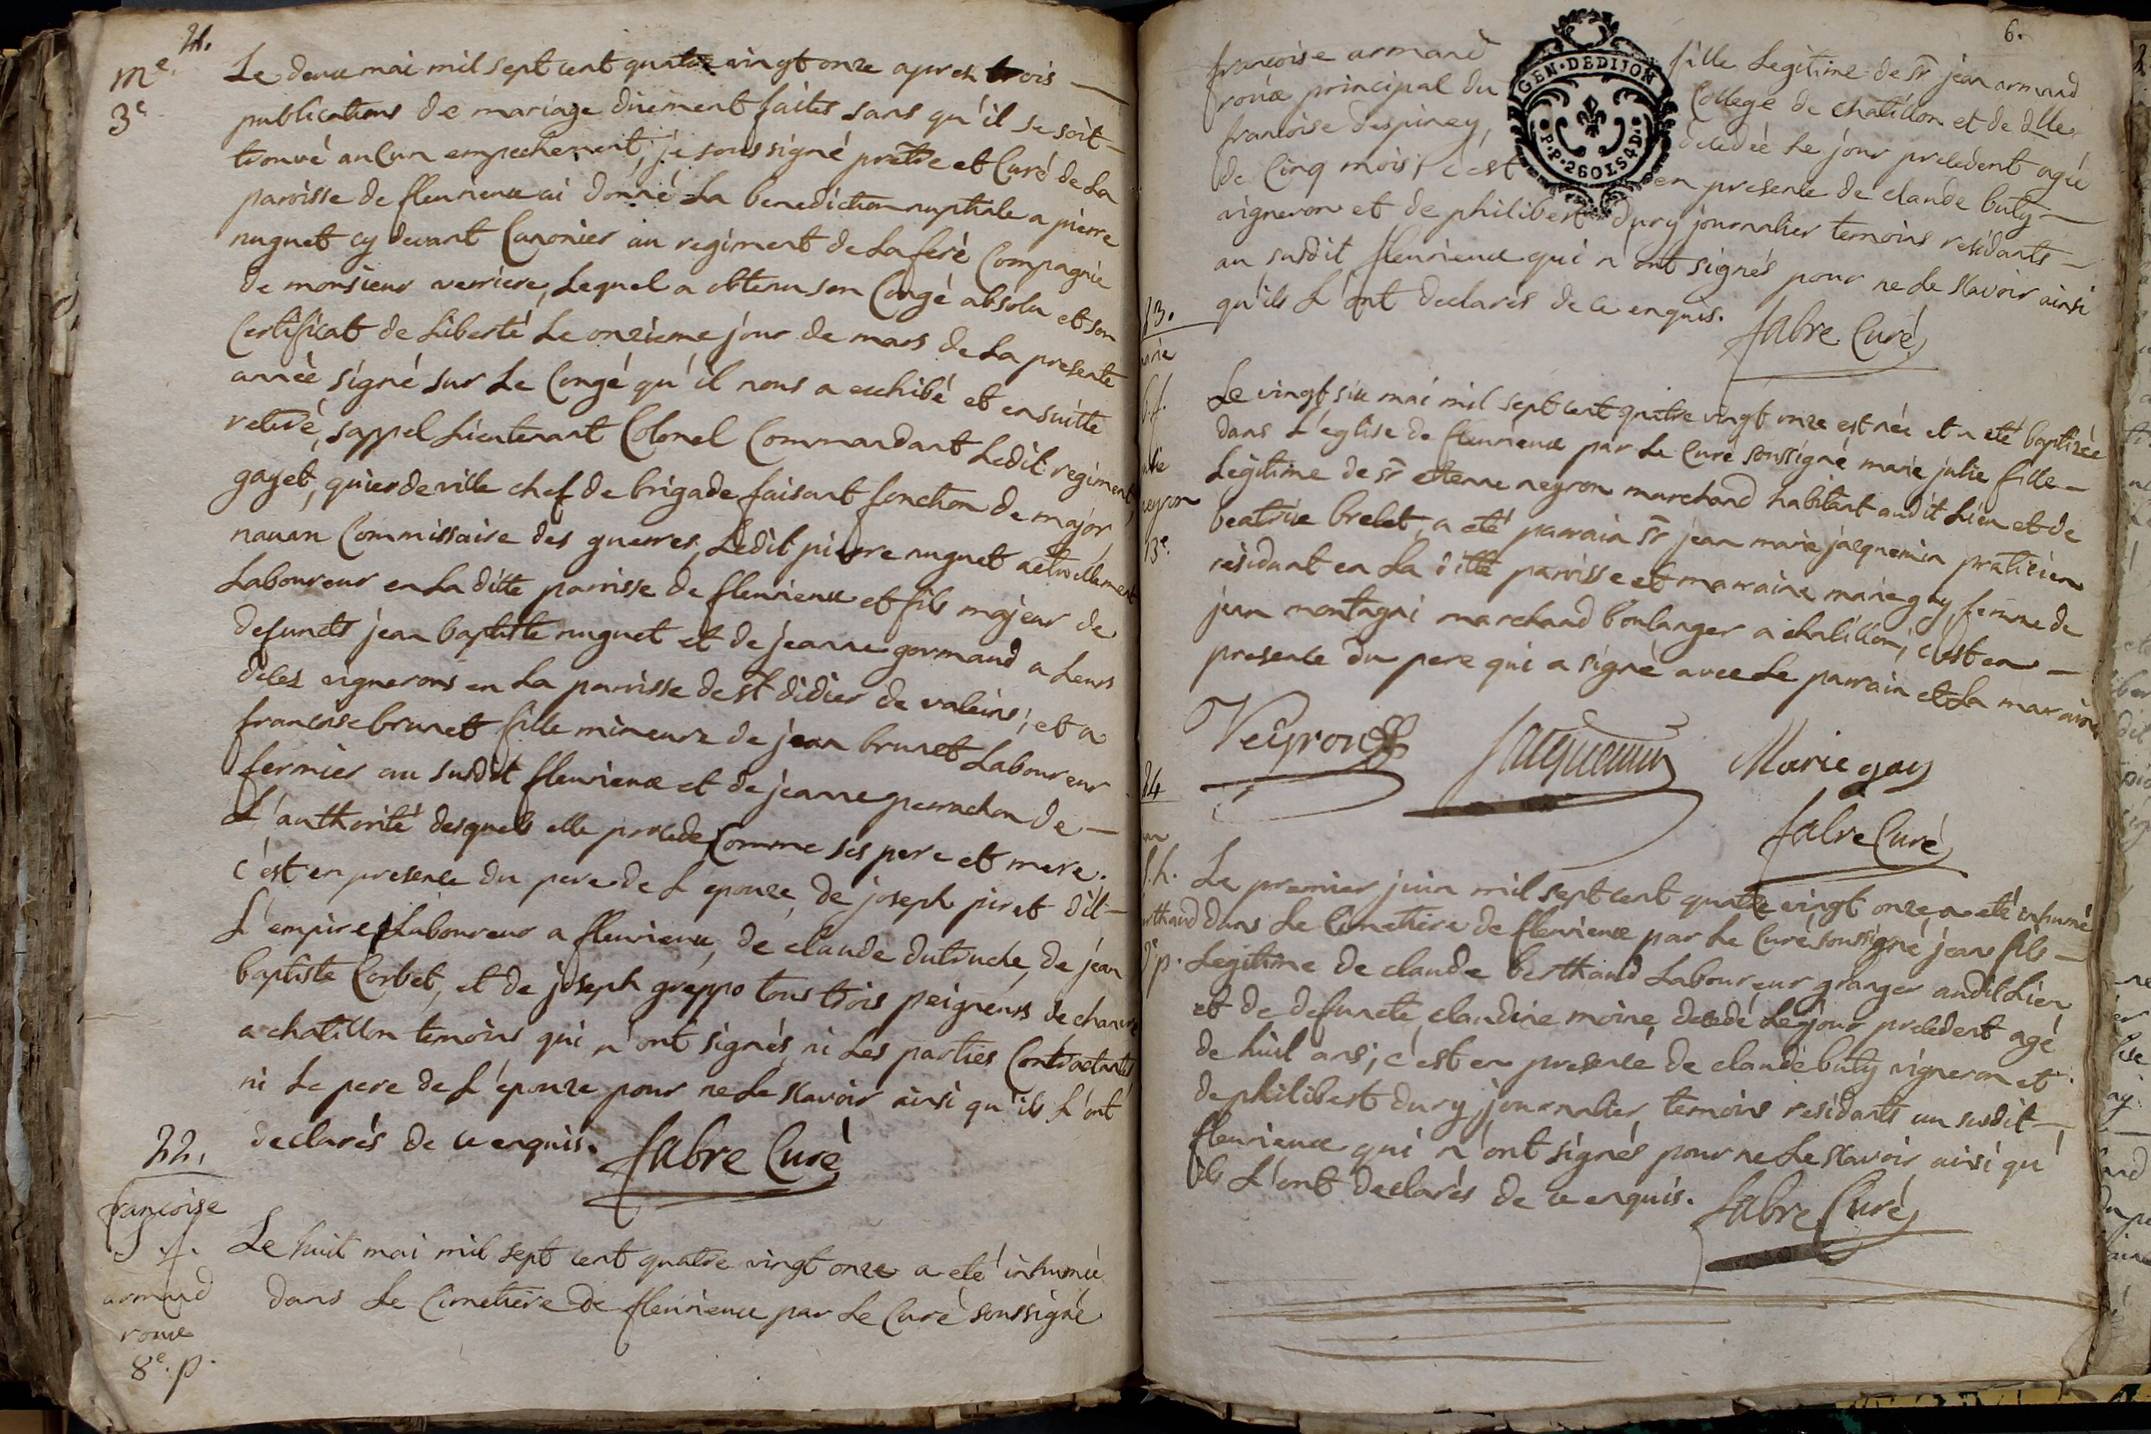 21.
me
3e
Le deux mai mil sept cent quatre vingt onze apres trois
publications de mariage duement faites sans qu'il se soit
trouvé aucun empechement, je soussigné prêtre et Curé de la
paroisse de fleurieux ai donné La benediction nuptiale a pierre
nuguet cy devant Canonier au regiment de Lafere Compagnie
de monsieur verriere, Lequel a obtenu son Congé absolu et son
Certificat de Liberté Le onzieme jour de mars de La presente
année signé sur Le Congé qu'il nous a exchibé et ensuitte
retiré, sappel Lieutenant Colonel Commandant Ledit regiment,
gayet, quierdeville chef de brigade faisant fonction de major
navan Commissaire des guerres, Ledit pierre nuguet actuellement
Laboureur en La ditte parrisse de fleurieux et fils majeur de
defunts jean baptiste nuguet et de jeanne gormand a Leurs
déles vignerons en La parrisse de st didier de valeins; et a
francoise brunet fille mineure de jean brunet Laboureur
fermier au susdit fleurieux et de jeanne perrachon de
L'authorité desquels elle procede Comme ses pere et mere.
c'est en presence du pere de L'epouze, de joseph piret dit
L'empire Laboureur a fleurieux, de claude dutruche, de jean
baptiste Corbet, et de joseph greppo tous trois peigneurs de chanvre
a chatillon temoins qui n'ont signés ni Les parties Contractantes
ni Le pere de L'épouze pour ne Le scavoir ainsi qu'ils L'ont
declarés de ce enquis. fabre Curé
22.
francoise
armand
roux
8e. p.
Le huit mai mil sept cent quatre vingt onze a eté inhumée
dans Le Cimetiere de fleurieux par Le Curé soussigné
6.
GEN. DEDIJON
françoise armand fille Legitime de sr jean armand
roux principal du College de chatillon et de dlle
francoise despiney, decedée Le jour precedent agée
de Cinq mois; c'est en presence de claude buty
vigneron et de philibert dury journalier temoins residants
au susdit fleurieux qui n'ont signés pour ne Le scavoir ainsi
qu'ils L'ont declarés de ce enquis. fabre Curé
23.
Le vingt six mai mil sept cent quatre vingt onze est née et a eté baptizée
dans L'église de fleurieux par Le Curé soussigné marie julie fille
Legitime de sr etienne neyron marchand habitant audit Lieu et de
beatrixe brelet, a eté parrain sr jean marie jacquemin praticien
residant en La ditte parrisse et marraine marie gay femme de
jean montagni marchand boulanger a chatillon; c'est en
presence du pere qui a signé avec Le parrain et La marraine
Neyron Jacquemin Marie gay
fabre Curé
24
Le premier juin mil sept cent quatre vingt onze a eté inhumé
dans Le Cimetiere de fleurieux par Le Curé soussigné jean fils
Legitime de claude berthaud Laboureur granger audit Lieu
et de defuncte claudine moine, decedé Le jour precedent agé
de huit ans; c'est en presence de claude buty vigneron et
de philibert dury journalier, temoins residants au susdit
fleurieux qui n'ont signés pour ne Le scavoir ainsi qu'
ils L'ont declarés de ce enquis. fabre Curé